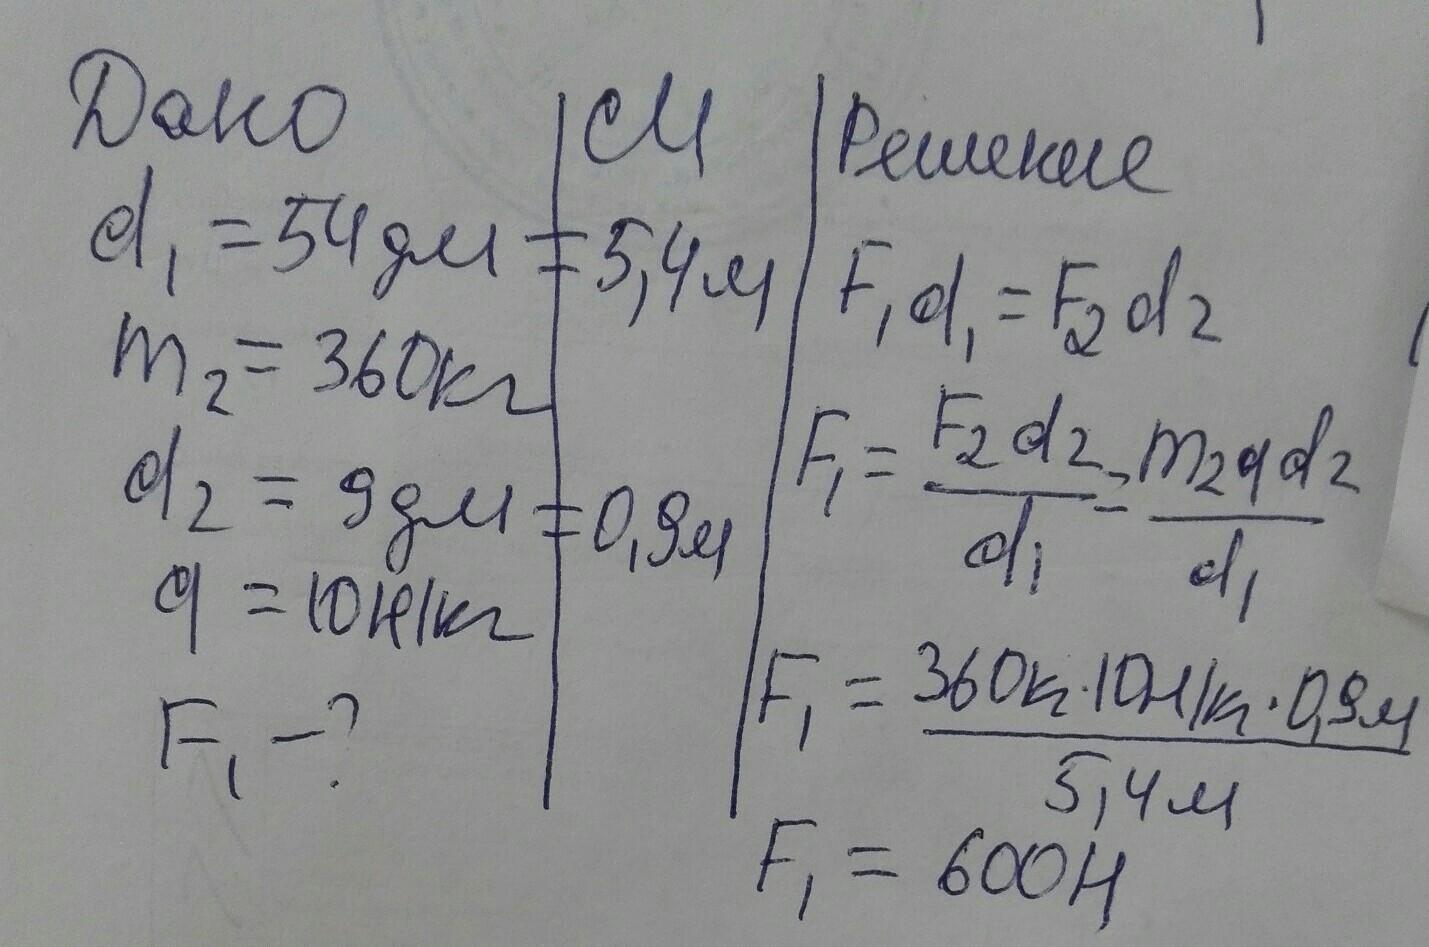 Дано
d₁ = 54 дм
m₂ = 360 кг
d₂ = 9 дм
q = 10 Н/кг
F₁ - ?
СИ
= 5,4 м
= 0,9 м
Решение
F₁d₁ = F₂d₂
F₁ = F₂d₂/d₁ = m₂qd₂/d₁
F₁ = 360к · 10Н/к · 0,9м / 5,4м
F₁ = 600Н